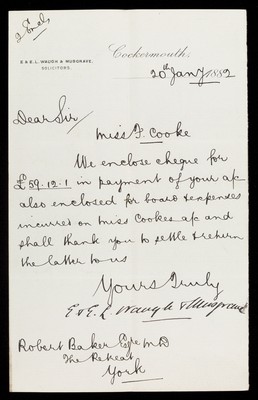 2 Encls
E & E. L. WAUGH & MUSGRAVE,
SOLICITORS.
Cockermouth,
20th Jany 1882
Dear Sir/
Miss F. Cooke
We enclose cheque for
£59.12.1 in payment of your a/c
also enclosed for board & expenses
incurred on Miss Cookes a/c and
shall thank you to settle & return
the latter to us
Yours Truly
E & E. L Waugh & Musgrave
Robert Baker Esqre MD
The Retreat
York